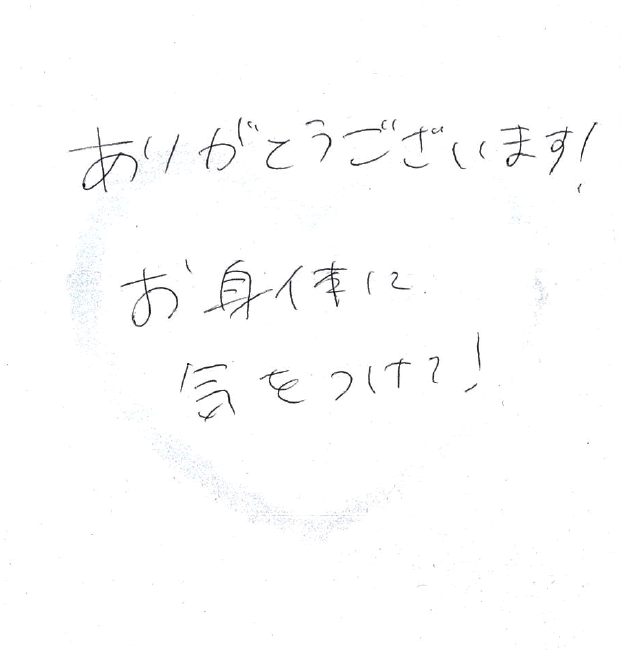 ありがとうございます!
お身体に
気をつけて!